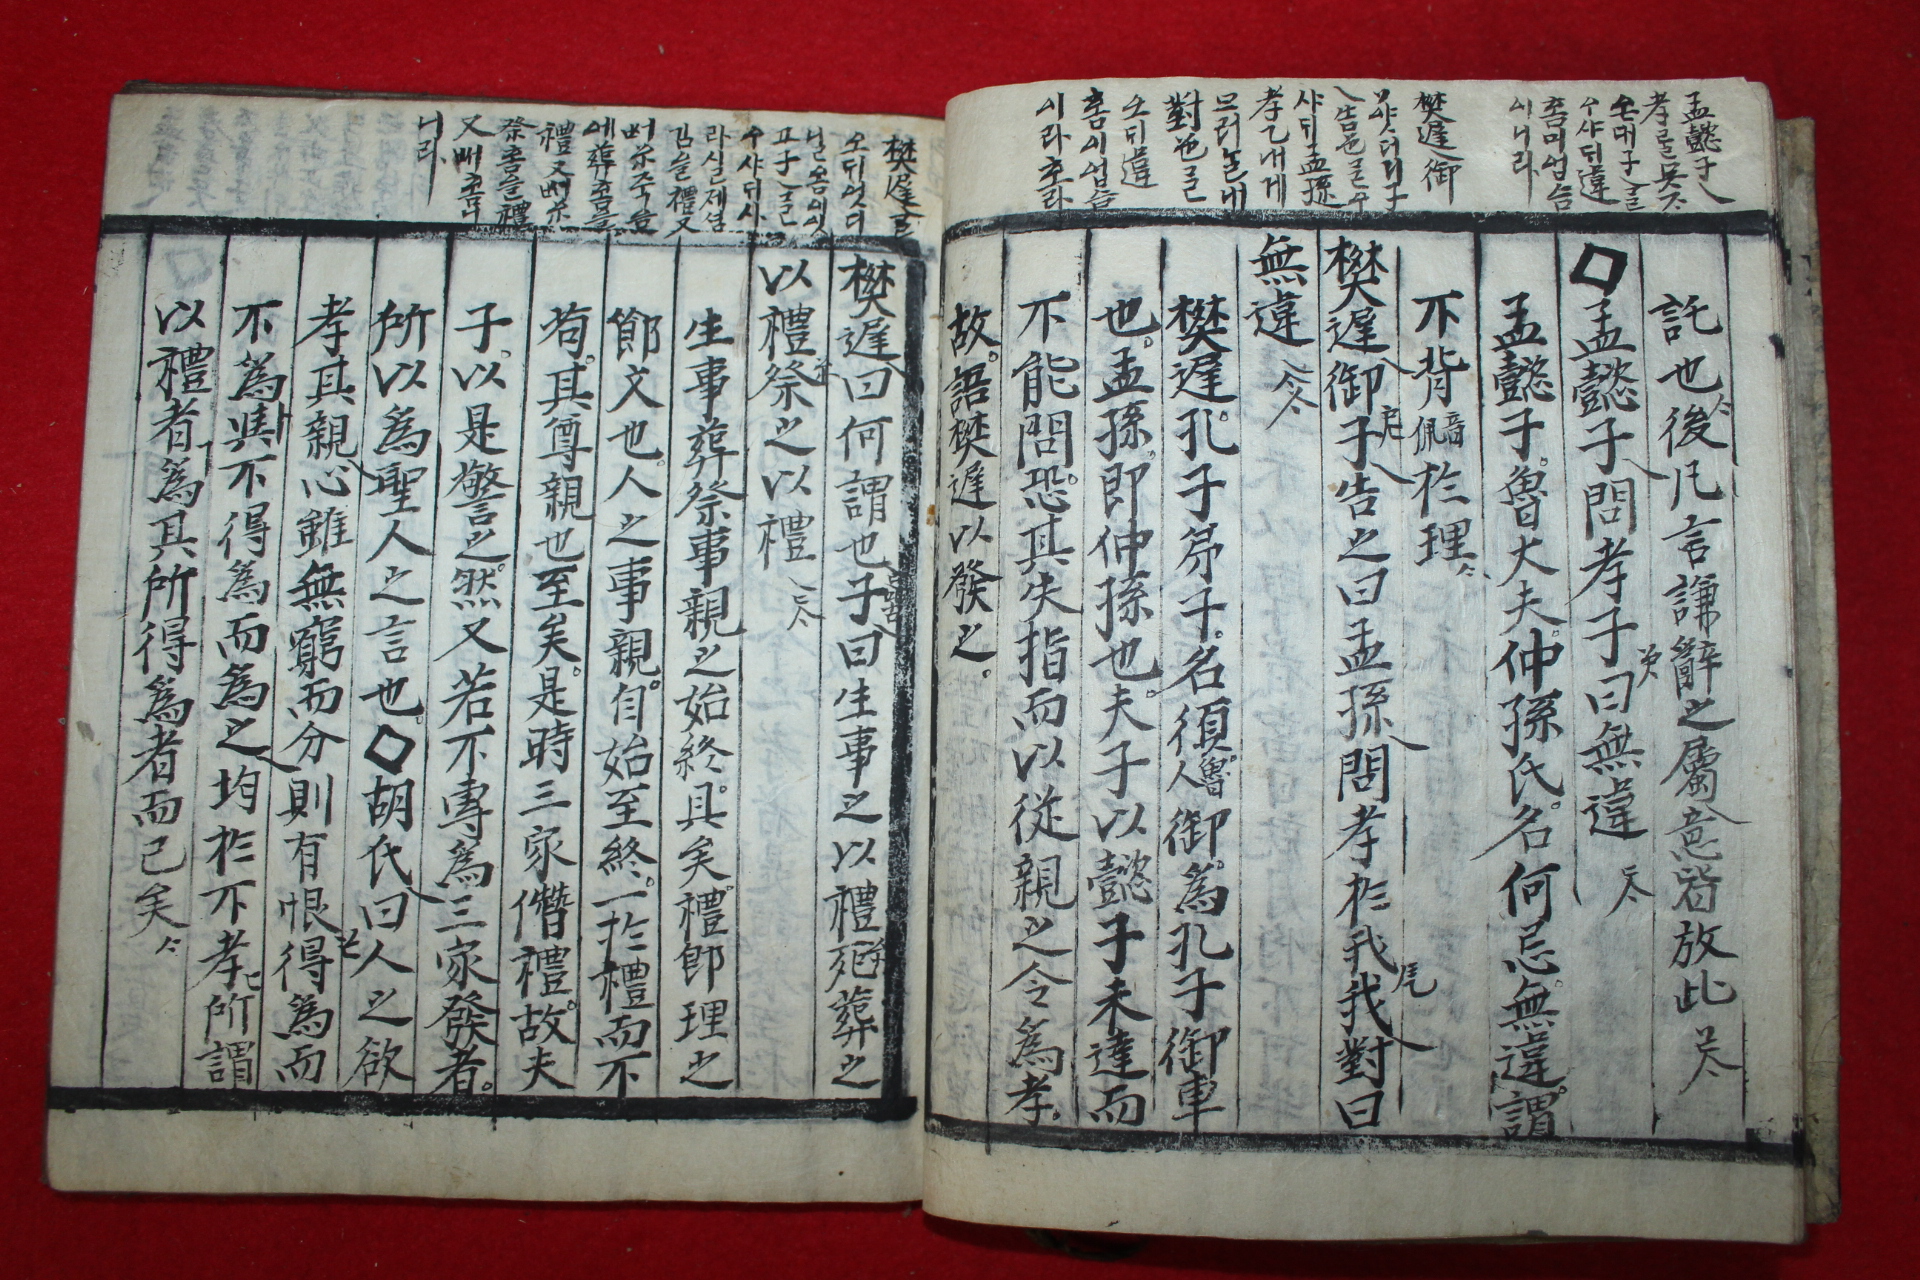 孟懿子ㅣ
孝를뭇ᄌ
온대子ㅣᄀᆞᆯ
ᄋᆞ샤ᄃᆡ違
홈미업슴
이니라
樊遲ㅣ御
ᄒᆞ얏더니子
ㅣ告ᄒᆞ야ᄀᆞᆯᄋᆞ
샤ᄃᆡ孟孫
孝乙내게
므러ᄂᆞᆯ내
對ᄒᆞ야ᄀᆞᆯ
오ᄃᆡ違
홈이업슴
이라호라
託也後凡言謙辭之屬意皆放此
孟懿子問孝子曰無違
孟懿子魯大夫仲孫氏名何忌無違謂
不背音佩於理
樊遲御子告之曰孟孫問孝於我我對曰
無違
樊遲孔子弟子名須魯人御為孔子御車
也孟孫即仲孫也夫子以懿子未達而
不能問恐其失指而以從親之令為孝
故語樊遲以發之
樊遲ᄀᆞᆯ
오ᄃᆡ엇디
닐옴이잇
고子ㅣᄀᆞᆯ
ᄋᆞ샤ᄃᆡ사
라실제셤
김을禮又
에葬홈을
禮又
祭홈을禮
니라
樊遲曰何謂也子曰生事之以禮死葬之
以禮祭之以禮
生事葬祭事親之始終具矣禮即理之
節文也人之事親自始至終一於禮而不
苟其尊親也至矣是時三家僭禮故夫
子以是警之然又若不專為三家發者
所以為聖人之言也胡氏曰人之欲
孝其親心雖無窮而分則有恨得為而
不為與不得為而為之均於不孝所謂
以禮者為其所得為者而已矣